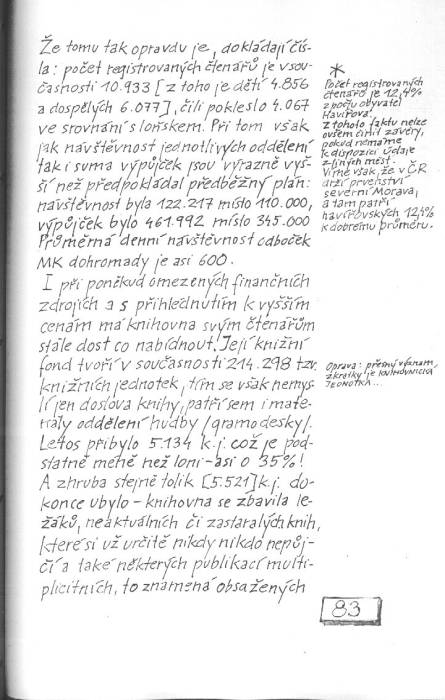 Že tomu tak opravdu je, dokládají čís-
la: počet registrovaných čtenářů je v sou-
časnosti 10.933 [z toho je dětí 4.856
a dospělých 6.077], čili pokleslo 4.067
ve srovnání s lořskem. Při tom však
jak návštěvnost jednotlivých oddělení
tak i suma výpůjček jsou výrazně vyš-
ší než předpokládal předběžný plán:
návštěvnost byla 122.217 místo 110.000,
výpůjček bylo 461.992 místo 345.000
Průměrná denní návštěvnost odboček
MK dohromady je asi 600.
I při poněkud omezených finančních
zdrojích a s přihlédnutím k vyšším
cenám má knihovna svým čtenářům
stále dost co nabídnout. Její knižní
fond tvoří v současnosti 214.298 tzv.
knižních jednotek, tím se však nemys-
lí jen doslova knihy, patří sem i mate-
riály oddělení hudby /gramodesky/.
Letos přibylo 5.134 k.j. což je pod-
statně méně než loni - asi o 35%!
A zhruba stejně tolik [5.521] k.j. do-
konce ubylo - knihovna se zbavila le-
žáků, neaktuálních či zastaralých knih,
které si už určitě nikdy nikdo nepůj-
čí a také některých publikací multi-
plicitních, to znamená obsažených
*
Počet registrovaných
čtenářů je 12,4%
z počtu obyvatel
Havířova.
Z tohoto faktu nelze
ovšem činit závěry,
pokud nemáme
k dispozici údaje
z jiných měst.
Víme však, že v ČR
drží prvenství
severní Morava,
a tam patří
havířovských 12,4%
k dobrému průměru.
Oprava: přesný význam
zkratky je KNIHOVNICKÁ
JEDNOTKA...
83